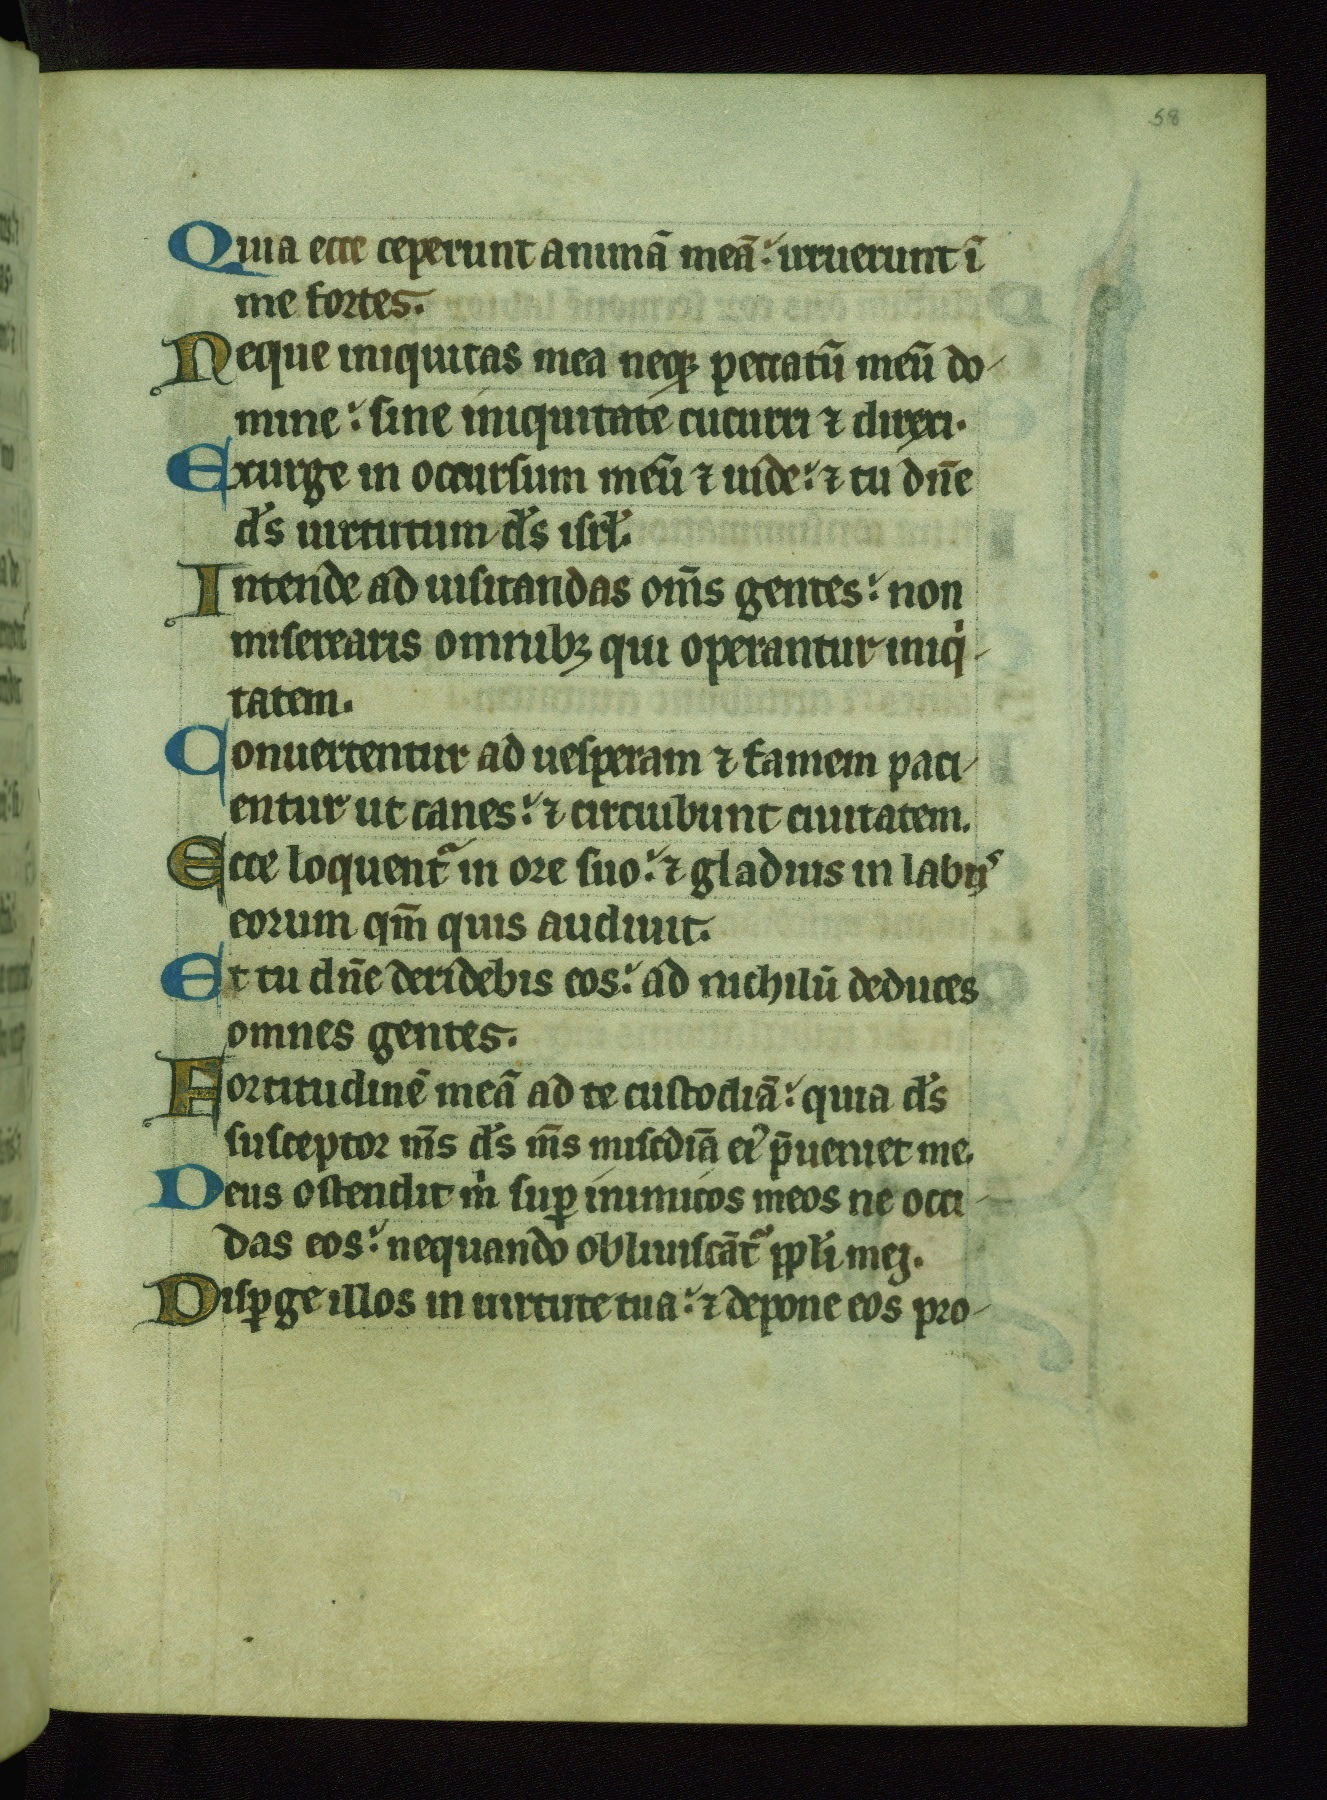 58
Quia ecce ceperunt animā meā: irruerunt ī
me fortes.
Neque iniquitas mea neqꝫ peccatū meū do-
mine: sine iniquitate cucurri ⁊ direxi.
Exurge in occursum meū ⁊ uide: ⁊ tu dn̄e
ds̄ uirtutum ds̄ isrl̄.
Intende ad uisitandas om̄s gentes: non
miserearis omnibꝫ qui operantur iniqⁱ-
tatem.
Conuertentur ad uesperam ⁊ famem paci-
entur ut canes: ⁊ circuibunt ciuitatem.
Ecce loquent᷑ in ore suo: ⁊ gladius in labijˢ
eorum qm̄ quis audiuit.
Et tu dn̄e deridebis eos: ad nichilū deduces
omnes gentes.
Fortitudinē meā ad te custodiā: quia ds̄
susceptor m̄s ds̄ m̄s mis̄cdiā eiꝰ p̄ueniet me.
Deus ostendit mⁱ suꝑ inimicos meos ne occi-
das eos: nequando obliuiscāt᷑ ppl̄i mej.
Disꝑge illos in uirtute tua: ⁊ depone eos pro-